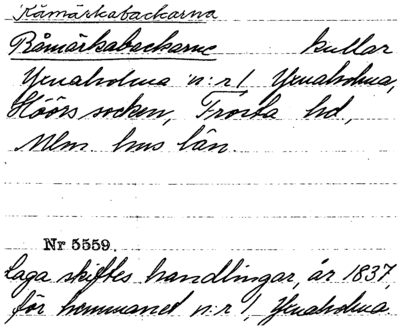 Råmärkabackarna
Råmärkabackarne kullar
Ynnaholma n:r 1 Ynnaholma,
Höörs socken, Frosta hd,
Mlm hus län.
Nr 5559.
Laga skiftes handlingar, år 1837,
för hemmanet n:r 1, Ynnaholma